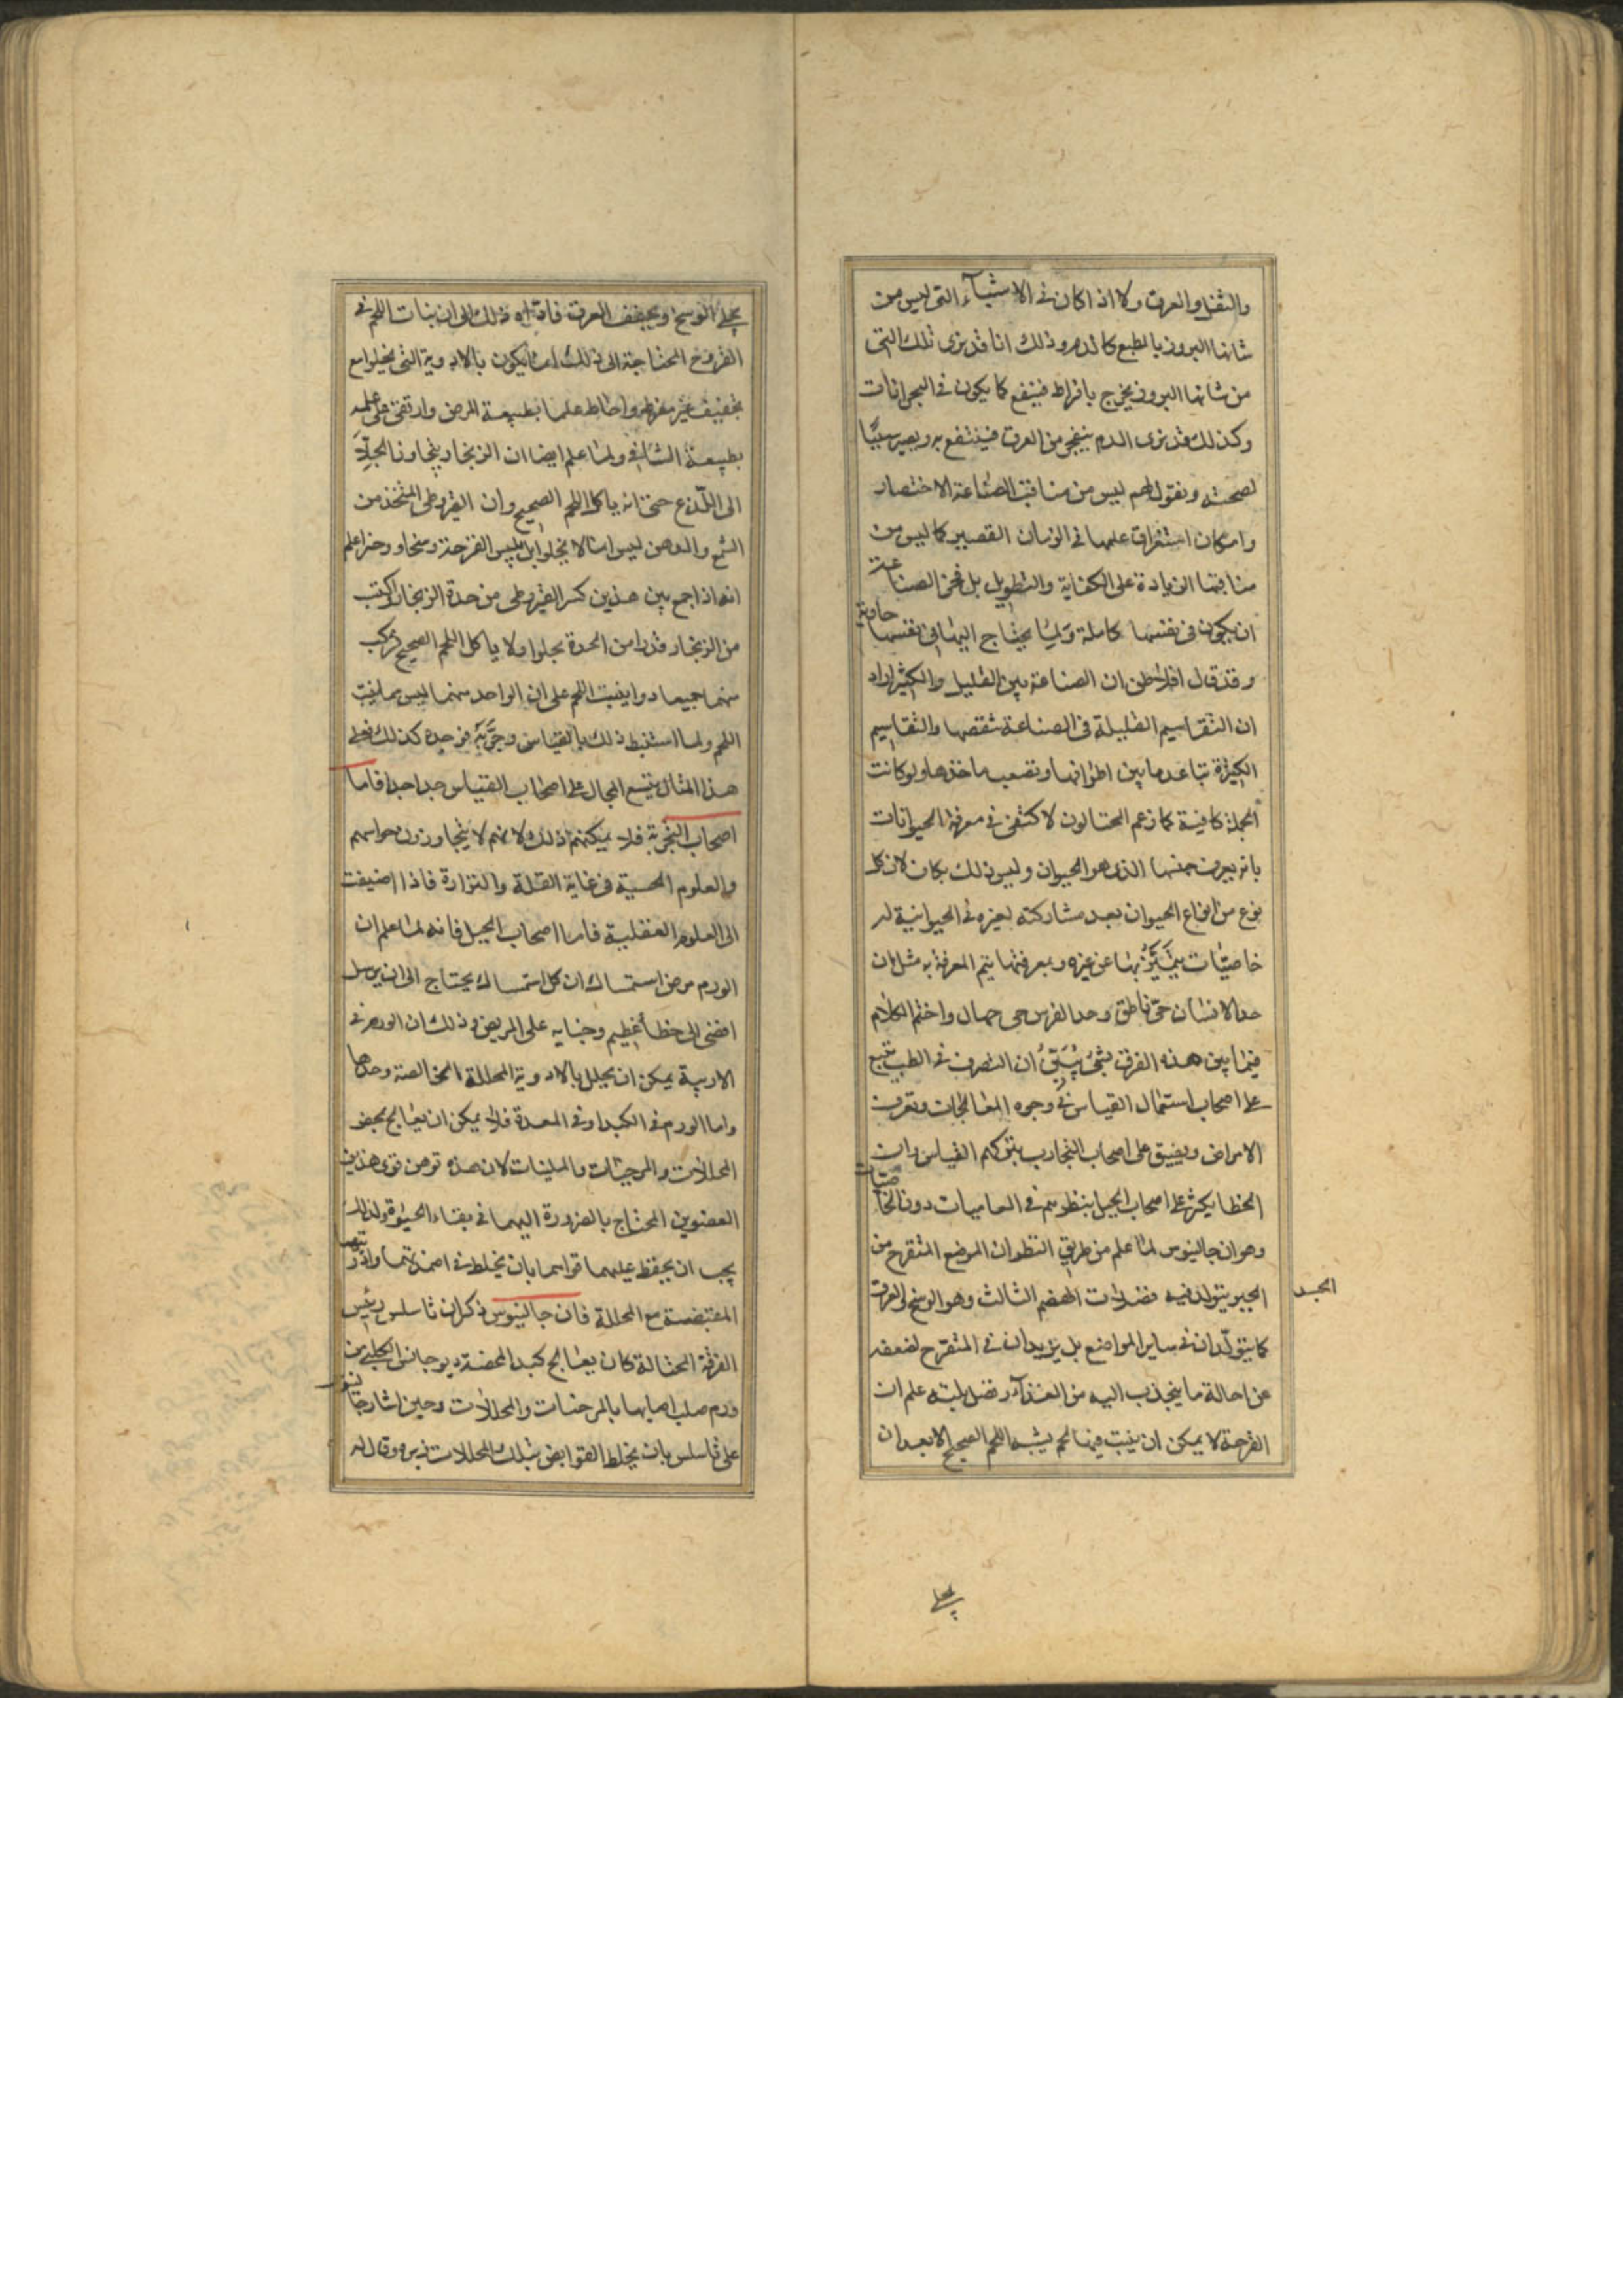 والثفل والعرق ولا اذا كان فى الاشيآء التى ليس من
شانها البروز بالطبع كالدم وذلك انا قد نرى تلك التى
من شانها البروز يخرج بافراط فينفع كما يكون فى البحرانات
وكذلك قد نرى الدم ينفجر من العرق فينتفع به ويصير سببًا
لصحته ونقول لهم ليس من مناقب الصناعة الاختصار
وامكان استغراق علمها فى الزمان القصير كما ليس من
مناقبها الزيادة على الكفاية والتطويل بل فخر الصناعة
ان يكون فى نفسها كاملة ولما يحتاج اليها فى نفسها حاوية
وقد قال افلاطن ان الصناعة بين القليل والكثير اراد
ان التقاسيم القليلة فى الصناعة تنقصها والتقاسيم
الكثيرة تباعد ما بين اطرافها وتصعب ماخذها ولو كانت
الجملة كافية كما زعم المحتالون لاكتفى فى معرفة الحيوانات
بان يعرف جنسها الذى هو الحيوان وليس ذلك بكان لان كل
نوع من انواع الحيوان بعد مشاركته لغيره فى الحيوانية له
خاصيّات يتميّز بها عن غيره وبمعرفتها يتم المعرفة به مثل ان
حد الانسان حى ناطق وحد الفرس حى صهال واختم الكلام
فيما بين هذه الفرق بشئ يبيّن ان التصرف فى الطب يتسع
على اصحاب استعمال القياس فى وجوه المعالجات وتعرف
الامراض ويضيق على اصحاب التجارب بتركهم القياس وان
الخطا يكثر على اصحاب الحيل بنظرهم فى العاميات دون الخاصيّات
وهو ان جالينوس لما علم من طريق النظر ان الموضع المتقرح من
الجسد
يتولد فيه فضلات الهضم الثالث وهو الوسخ والعرق
كما يتولّدان فى ساير المواضع بل يزيدان فى المتقرح لضعفه
عن احالة ما ينجذب اليه من الغذآء وفضل بلته علم ان
القرحة لا يمكن ان ينبت فيها لحم يشبه اللحم الصحيح الا بعد ان
يجلى
يجلى الوسخ ويجفف العرق فاقتاده ذلك الى ان نبات اللحم فى
القروح المحتاجة الى ذلك انما يكون بالادوية التى يجلوا مع
تجفيف غير مفرط واحاط علما بطبيعة المرض وارتقى الى علمه
بطبيعة الشافى ولما علم ايضا ان الزنجار يتجاوز الجلآ
الى اللذع حتى انه ياكل اللحم الصحيح وان القيروطى المتخذ من
الشمع والدهن ليس انما لا يجلو ابل يلبس القرحة وسخا وخر اعلم
انه اذا جمع بين هذين كسر القيروطى من حدة الزنجار واكتسب
من الزنجار قدرا من الحدة يجلوا ولا ياكل اللحم الصحيح فركب
منهما جميعا دوا ينبت اللحم على ان الواحد منهما ليس مما ينبت
اللحم ولما استنبط ذلك بالقياس وجرّبه فوجده كذلك فعلى
هذا المثال يتسع المجال على اصحاب القياس جدا جدا فاما
اصحاب التجربة فلا يمكنهم ذلك لانهم لا يتجاوزون حواسهم
والعلوم الحسية فى غاية القلة والنزارة فاذا اضيفت
الى العلوم العقلية فاما اصحاب الحيل فانه لما علم ان
الورم مرض استمساك ان كل استمساك يحتاج الى ان يرسل
افضى الى خطأ عظيم وجناية على المريض وذلك ان الورم فى
الاربية يمكن ان يحلل بالادوية المحللة الخالصة وحدها
واما الورم فى الكبد او فى المعدة فلا يمكن ان يعالج بمحض
المحللات والمرخيات والملينات لان هذه توهن قوى هذين
العضوين المحتاج بالضرورة اليهما فى بقاء الحيوة ولذلك
يجب ان يحفظ عليهما قواهما بان يخلط فى اضمدتهما وادويتهما
المقبضة مع المحللة فان جالينوس ذكر ان ثاسلس رئيس
الفرقة المحتالة كان يعالج كبد ديوجانس الكلبى من
ورم صلب اصابها بالمرخيات والمحللات وحين اشار جالينوس
على ثاسلس بان يخلط القوابض بتلك المحللات وقال له